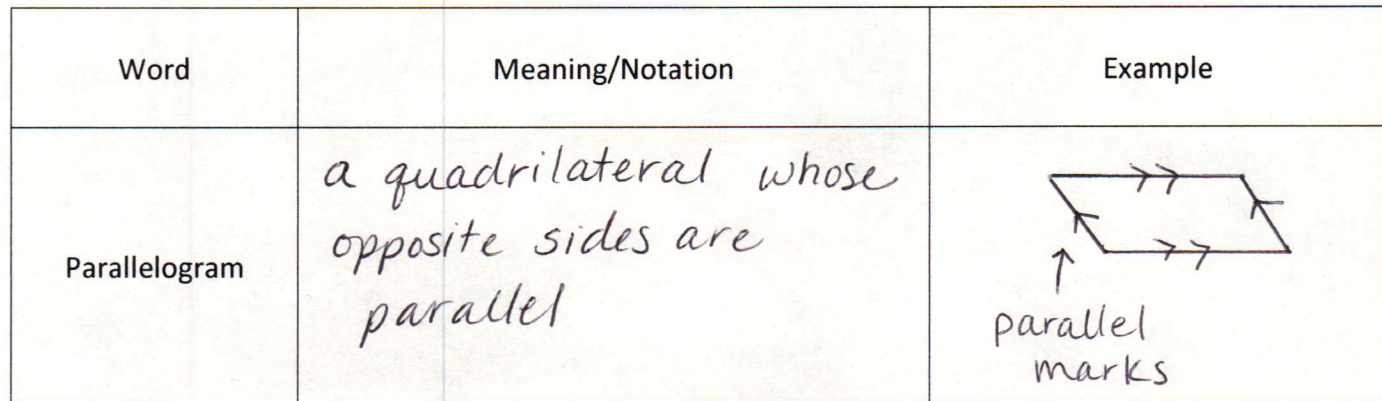 Word
Meaning/Notation
Example
Parallelogram
a quadrilateral whose
opposite sides are
parallel
parallel
marks